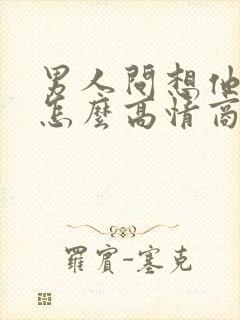 男人問想他
怎麼高情商
羅賓-塞克